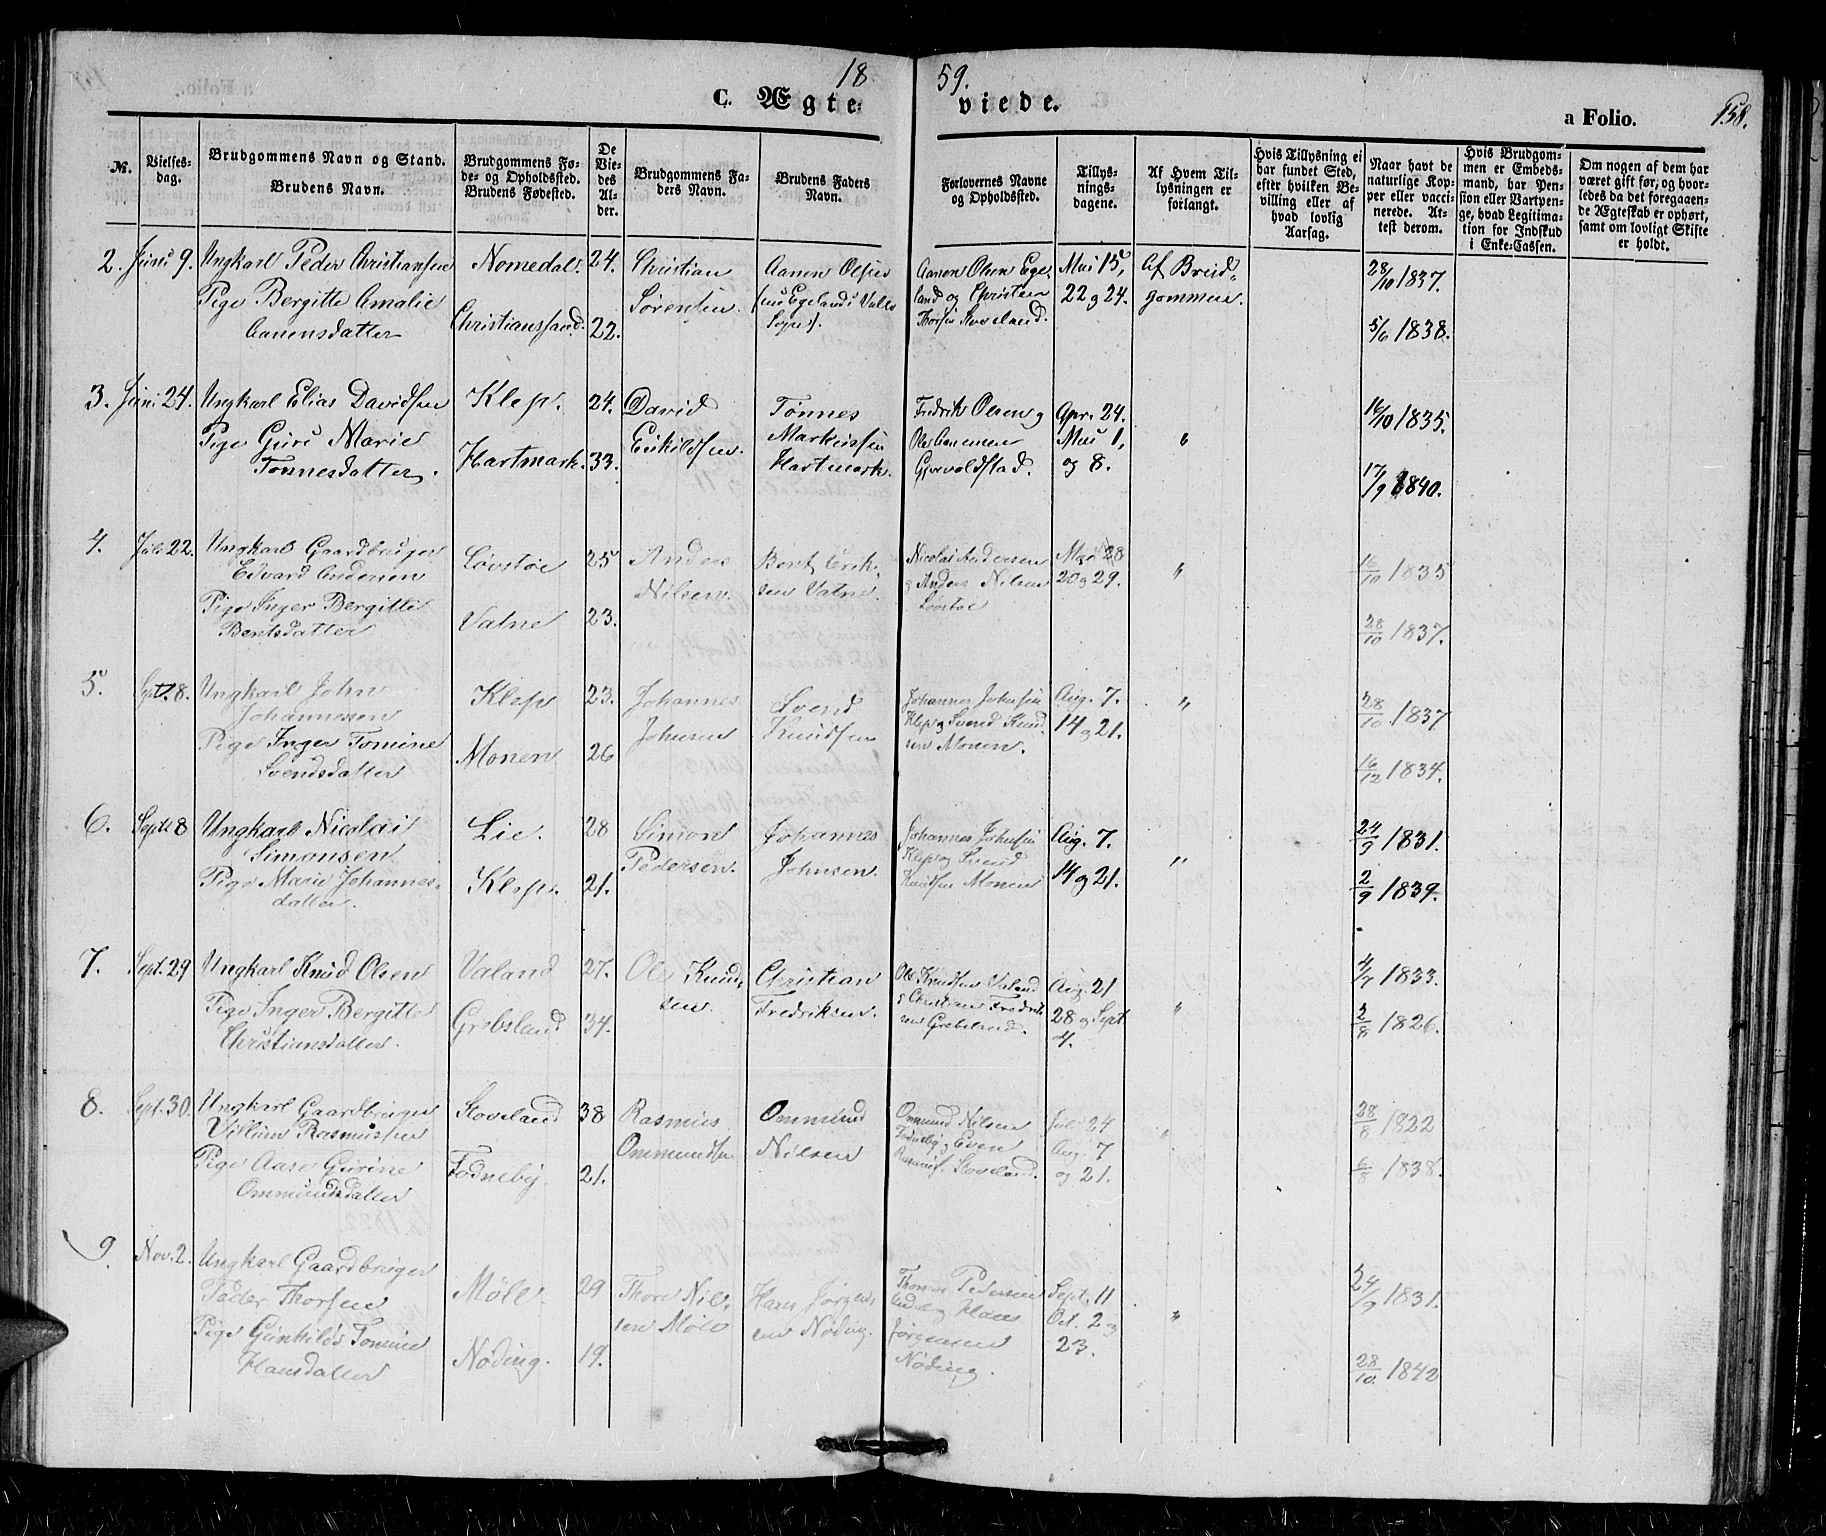 1859.
C. Ægteviede.
a Folio. 158.
№.
Vielsesdag.
Brudgommens Navn og Stand.
Brudens Navn.
Brudgommens Føde- og Opholdsted.
Brudens Fødested.
De Viedes Alder.
Brudgommens Faders Navn.
Brudens Faders Navn.
Forlovernes Navne og Opholdsted.
Tillysningsdagene.
Af Hvem Tillysningen er forlangt.
Hvis Tillysning ei har fundet Sted, efter hvilken Bevilling eller af hvad lovlig Aarsag.
Naar havt de naturlige Kopper eller vaccinerede. Attest derom.
Hvis Brudgommen er Embedsmand, har Pension eller Vartpenge, hvad Legitimation for Indskud i Enke-Cassen.
Om nogen af dem har været gift før, og hvorledes da det foregaaende Ægteskab er ophørt, samt om lovligt Skifte er holdt.
2. Juni 9. Ungkarl Peder Christiansen Nomedal. 24. Christian Sørensen. Aanen Olsen Aanen Olsen Egeland og Christen Mai 15, 22 og 24. Af Brudgommen. 28/10 1837.
Pige Bergitte Amalie Aanensdatter Christianssand. 22. 5/6 1838.
3. Juni 24. Ungkarl Elias Davidsen Klep. 24. David Eskildsen. Tønnes Markussen Hartmark. Fredrik Olsen og Apr. 24. Mai 1, og 8. " 16/10 1835.
Pige Guri Marie Tønnesdatter. Hartmark. 33. 17/9 1840.
4. Juli 22. Ungkarl Gaardbruger Edvard Andersen Løvstøe 25 Anders Nilsen. Bent Eriksen Vatne. Nicolai Andersen og Anders Nilsen Løvstøe 20 og 29. " 16/10 1835
Pige Inger Bergitte Bentsdatter Vatne 23. 28/10 1837.
5. Sept. 8. Ungkarl John Johannessen Klep 23. Johannes Johnsen Svend Knudsen Johannes Johnsen Klep og Svend Knudsen Monen. Aug. 7. 14 og 21. " 28/10 1837
Pige Inger Tomine Svendsdatter Monen 26 16/12 1834.
6. Septb 8 Ungkarl Nicolai Simonsen Lie. 28 Simon Pedersen. Johannes Johnsen. Johannes Johnsen Klep og Svend Knudsen Monen Aug. 7. 14 og 21. " 24/9 1831.
Pige Marie Johannesdatter. Klep. 21. 2/9 1839.
7. Sept. 29 Ungkarl Knud Olsen Valand 27. Ole Knudsen. Christian Fredriksen. Ole Knudsen Valand og Christian Fredriksen Grebsland. Aug. 21 28 og Sept 4. " 4/7 1833.
Pige Inger Bergitte Christiansdatter. Grebsland 34. 2/8 1826.
8. Sept. 30. Ungkarl Gaardbruger Villum Rasmussen Stoveland 38 Rasmus Ommundsen Ommund Nilsen Ommund Nilsen Fodneby og Even Rasmus. Stoveland. Juli 24 Aug. 7 og 21. " 28/8 1822
Pige Aase Gurine Ommundsdatter Fodneby. 21. 6/8 1838.
9. Nov. 2. Ungkarl Gaardbruger Peder Thorsen Møll. 29 Thore Nilsen Møll Hans Jørgensen Nøding. Thomas Pedersen og Hans Jørgensen Nøding. Sept. 11 Oct. 2 og 23. " 24/9 1831.
Pige Gunhilde Tomine Hansdatter Nøding. 19. 28/10. 1842